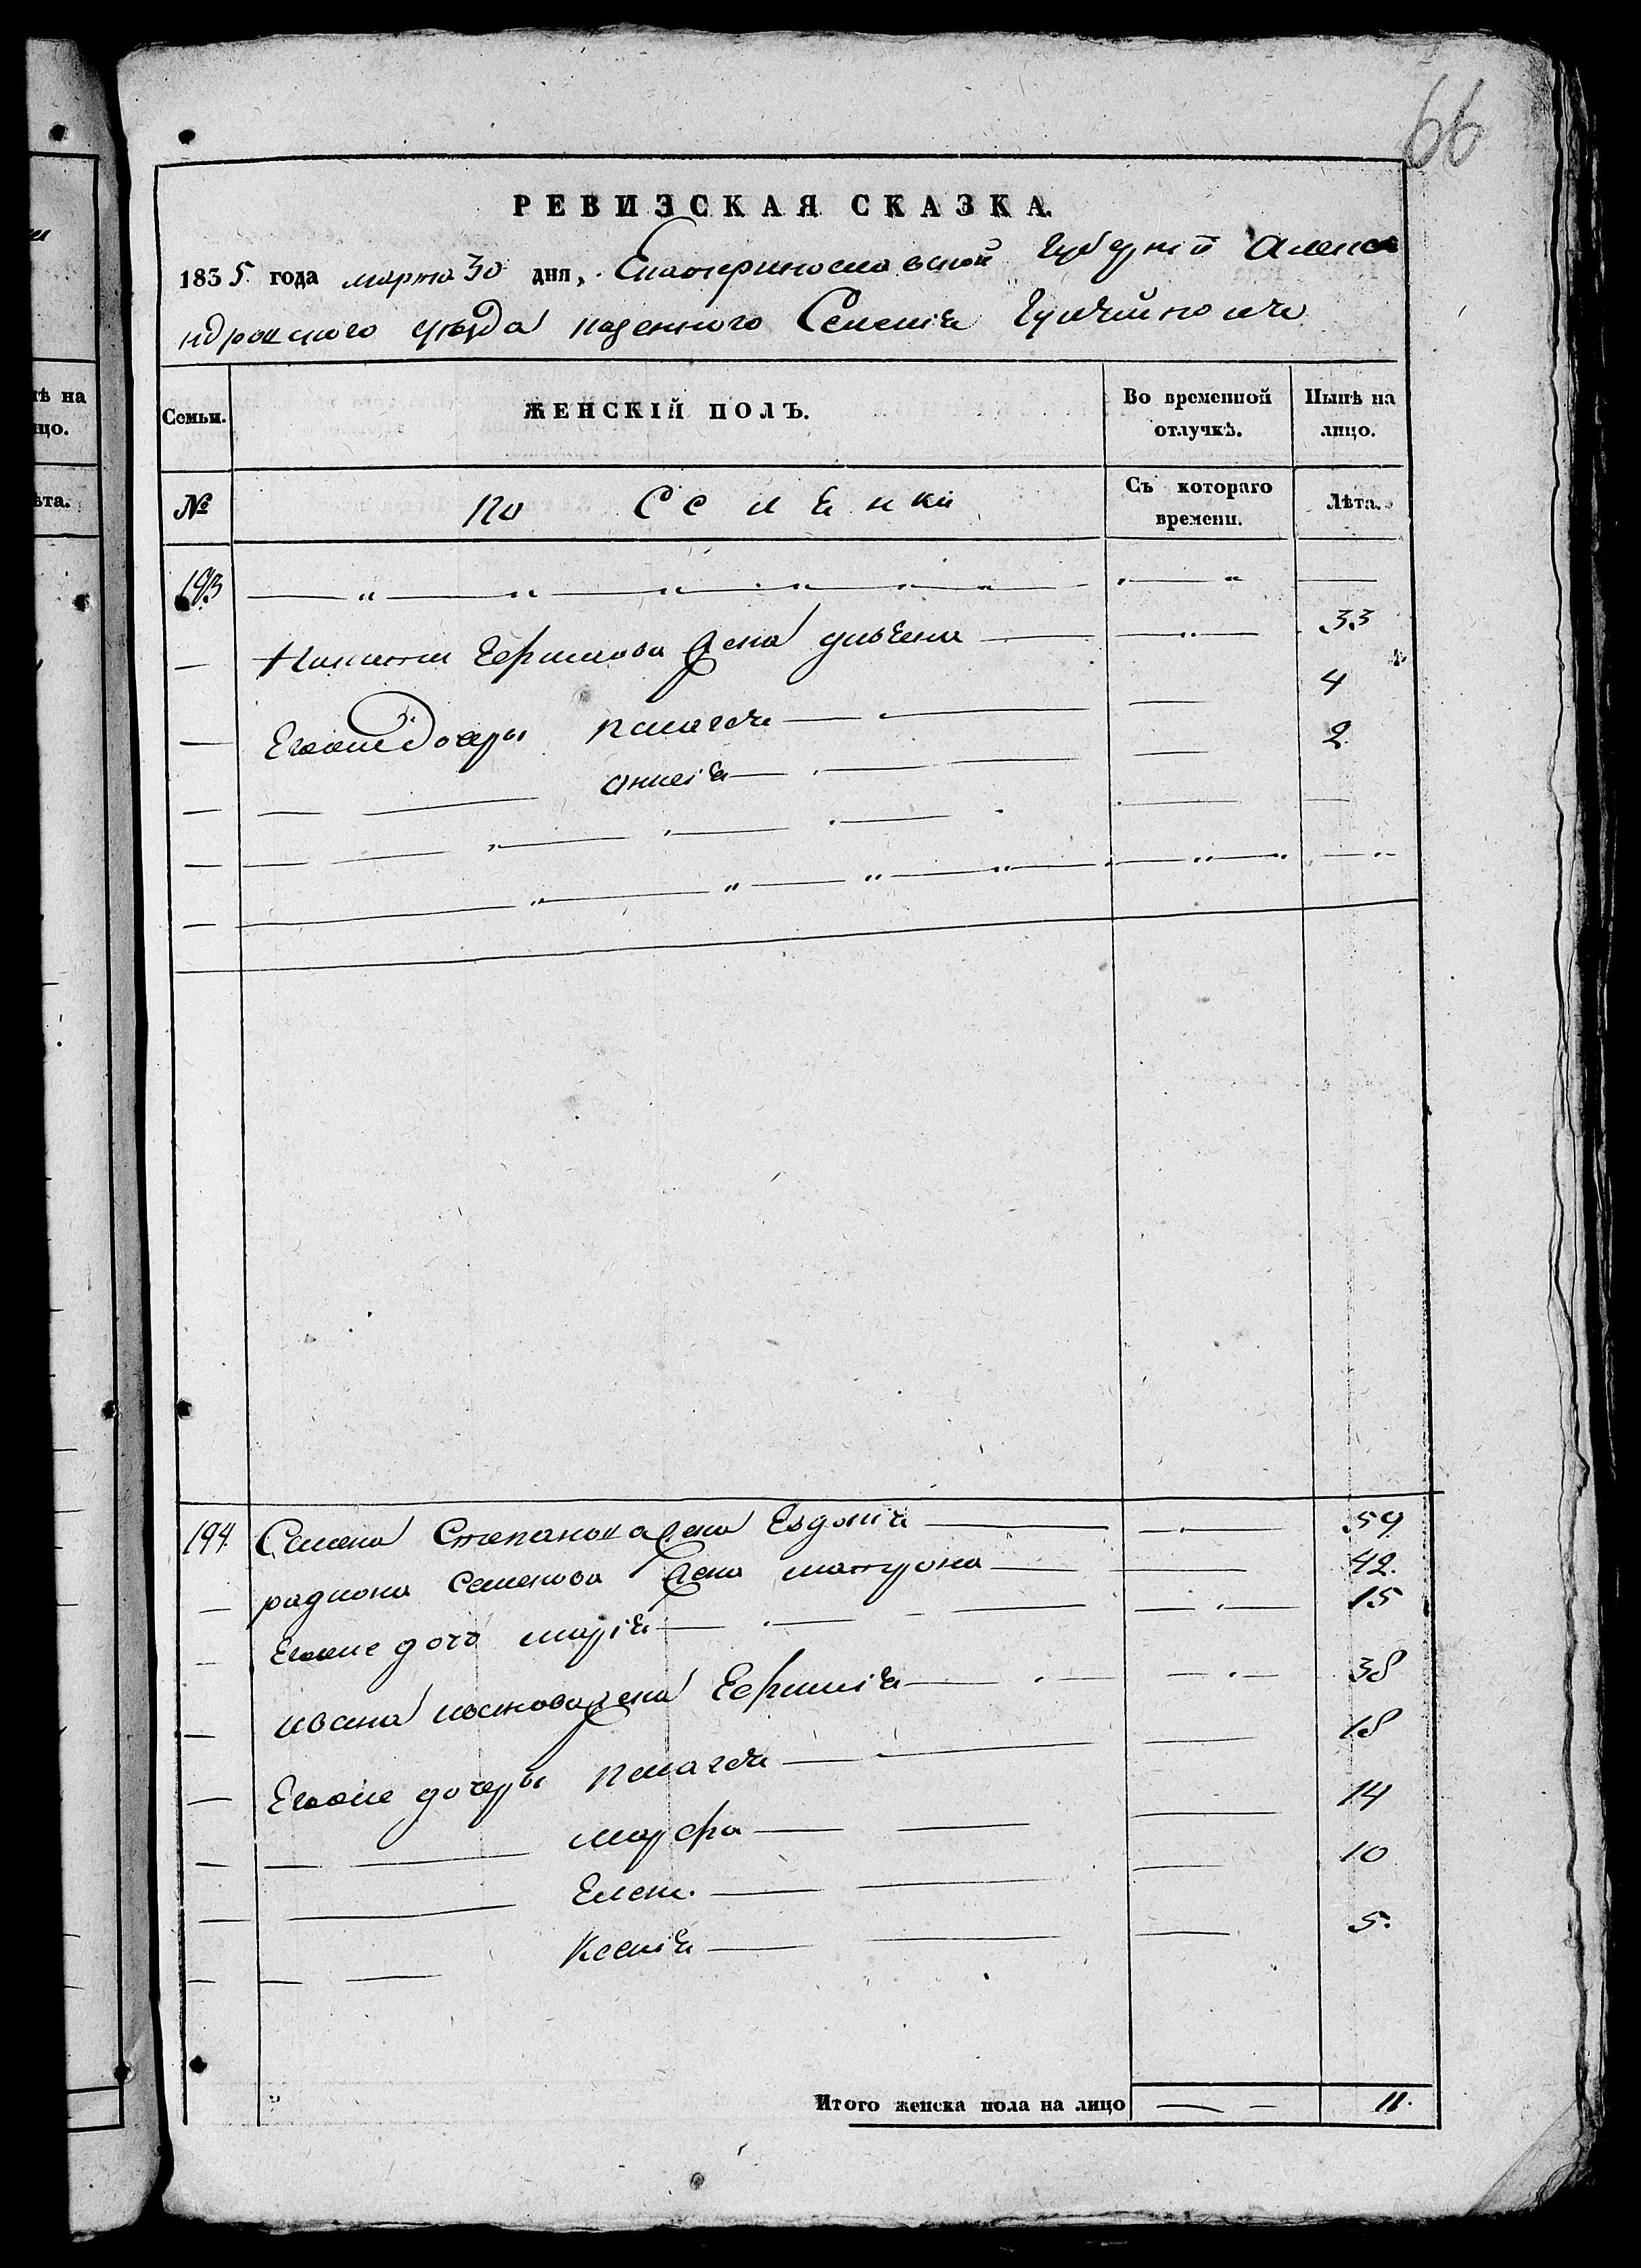 66
РЕВИЗСКАЯ СКАЗКА.
1835 года марта 30 дня, Екатеринославской Губерніи Алекса
ндровского уезда казенного Селенія Гуляйполя
Семьи. ЖЕНСКІЙ ПОЛЪ. Во временной отлучкѣ. Нынѣ на лицо.
№ Съ котораго времени. Лѣта.
193
жена 33
Егоже дочеры Пелагея 4
Анисія 2
194. Семена Степанова жена Евдокія 59
радиона Семенова жена матрона 42.
Егоже дочь марія 15
ивана иванова жена Ефимія 38
Егоже дочеры Пелагея 18
марфа 14
Елена 10
Ксенія 5.
Итого женска пола на лицо 11.